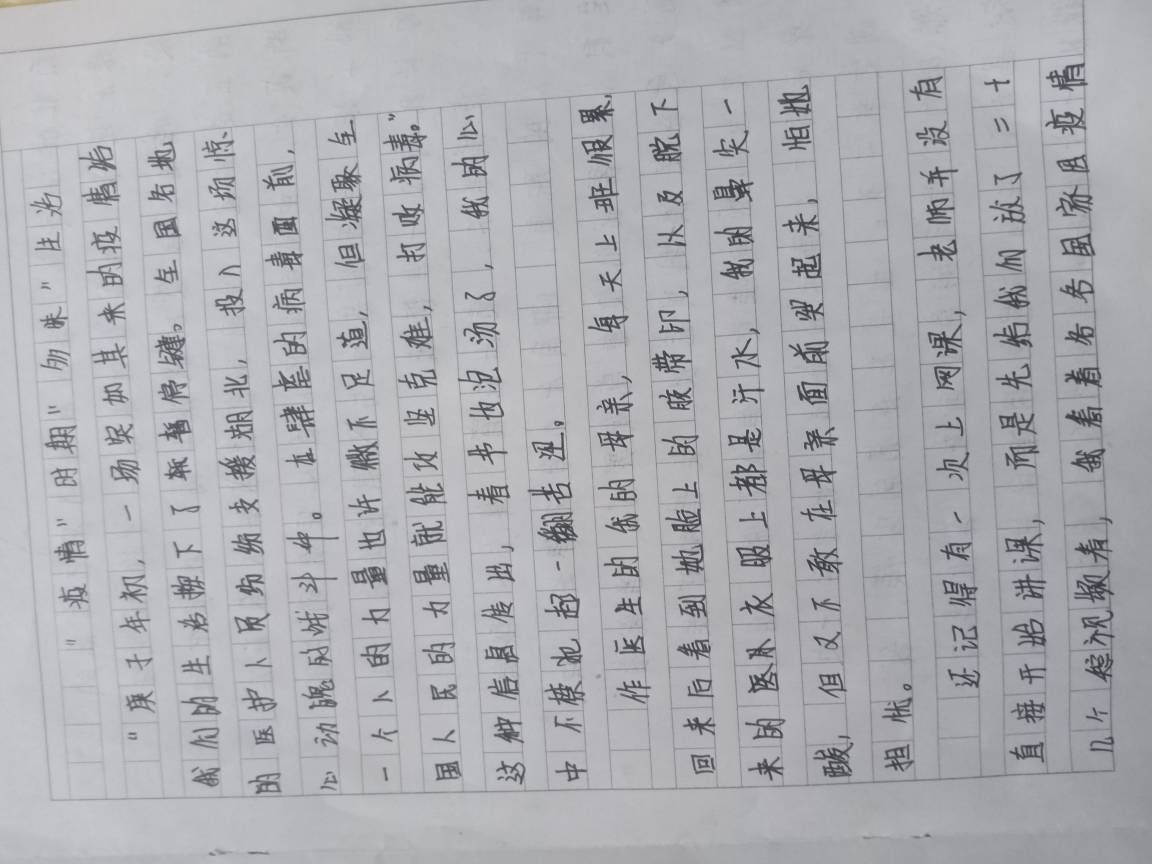 "疫情"时期"别眛"生活
"庚子年初，一场突如其来的疫情给
我们的生活按下了暂停键。全国各地
的医护人员纷纷支援湖北，投入这场惊
心动魄的战斗中。在肆虐的病毒面前，
一个人的力量也许微不足道，但凝聚全
国人民的力量就能攻坚克难，打败病毒。"
这种信息传出，看书也泡汤了，我的心
中不禁也起一翻苦涩。
作医生的我的母亲，每天上班很累，
回来后看到她脸上的胶带印，以及脱下
来的医用衣服上都是汗水，我的鼻尖一
酸，但又不敢在母亲面前哭起来，怕她
担忧。
还记得有一次上网课，老师并没有
直接开始讲课，而是先给我们放了二十
几个短视频看，我看着各国家因疫情